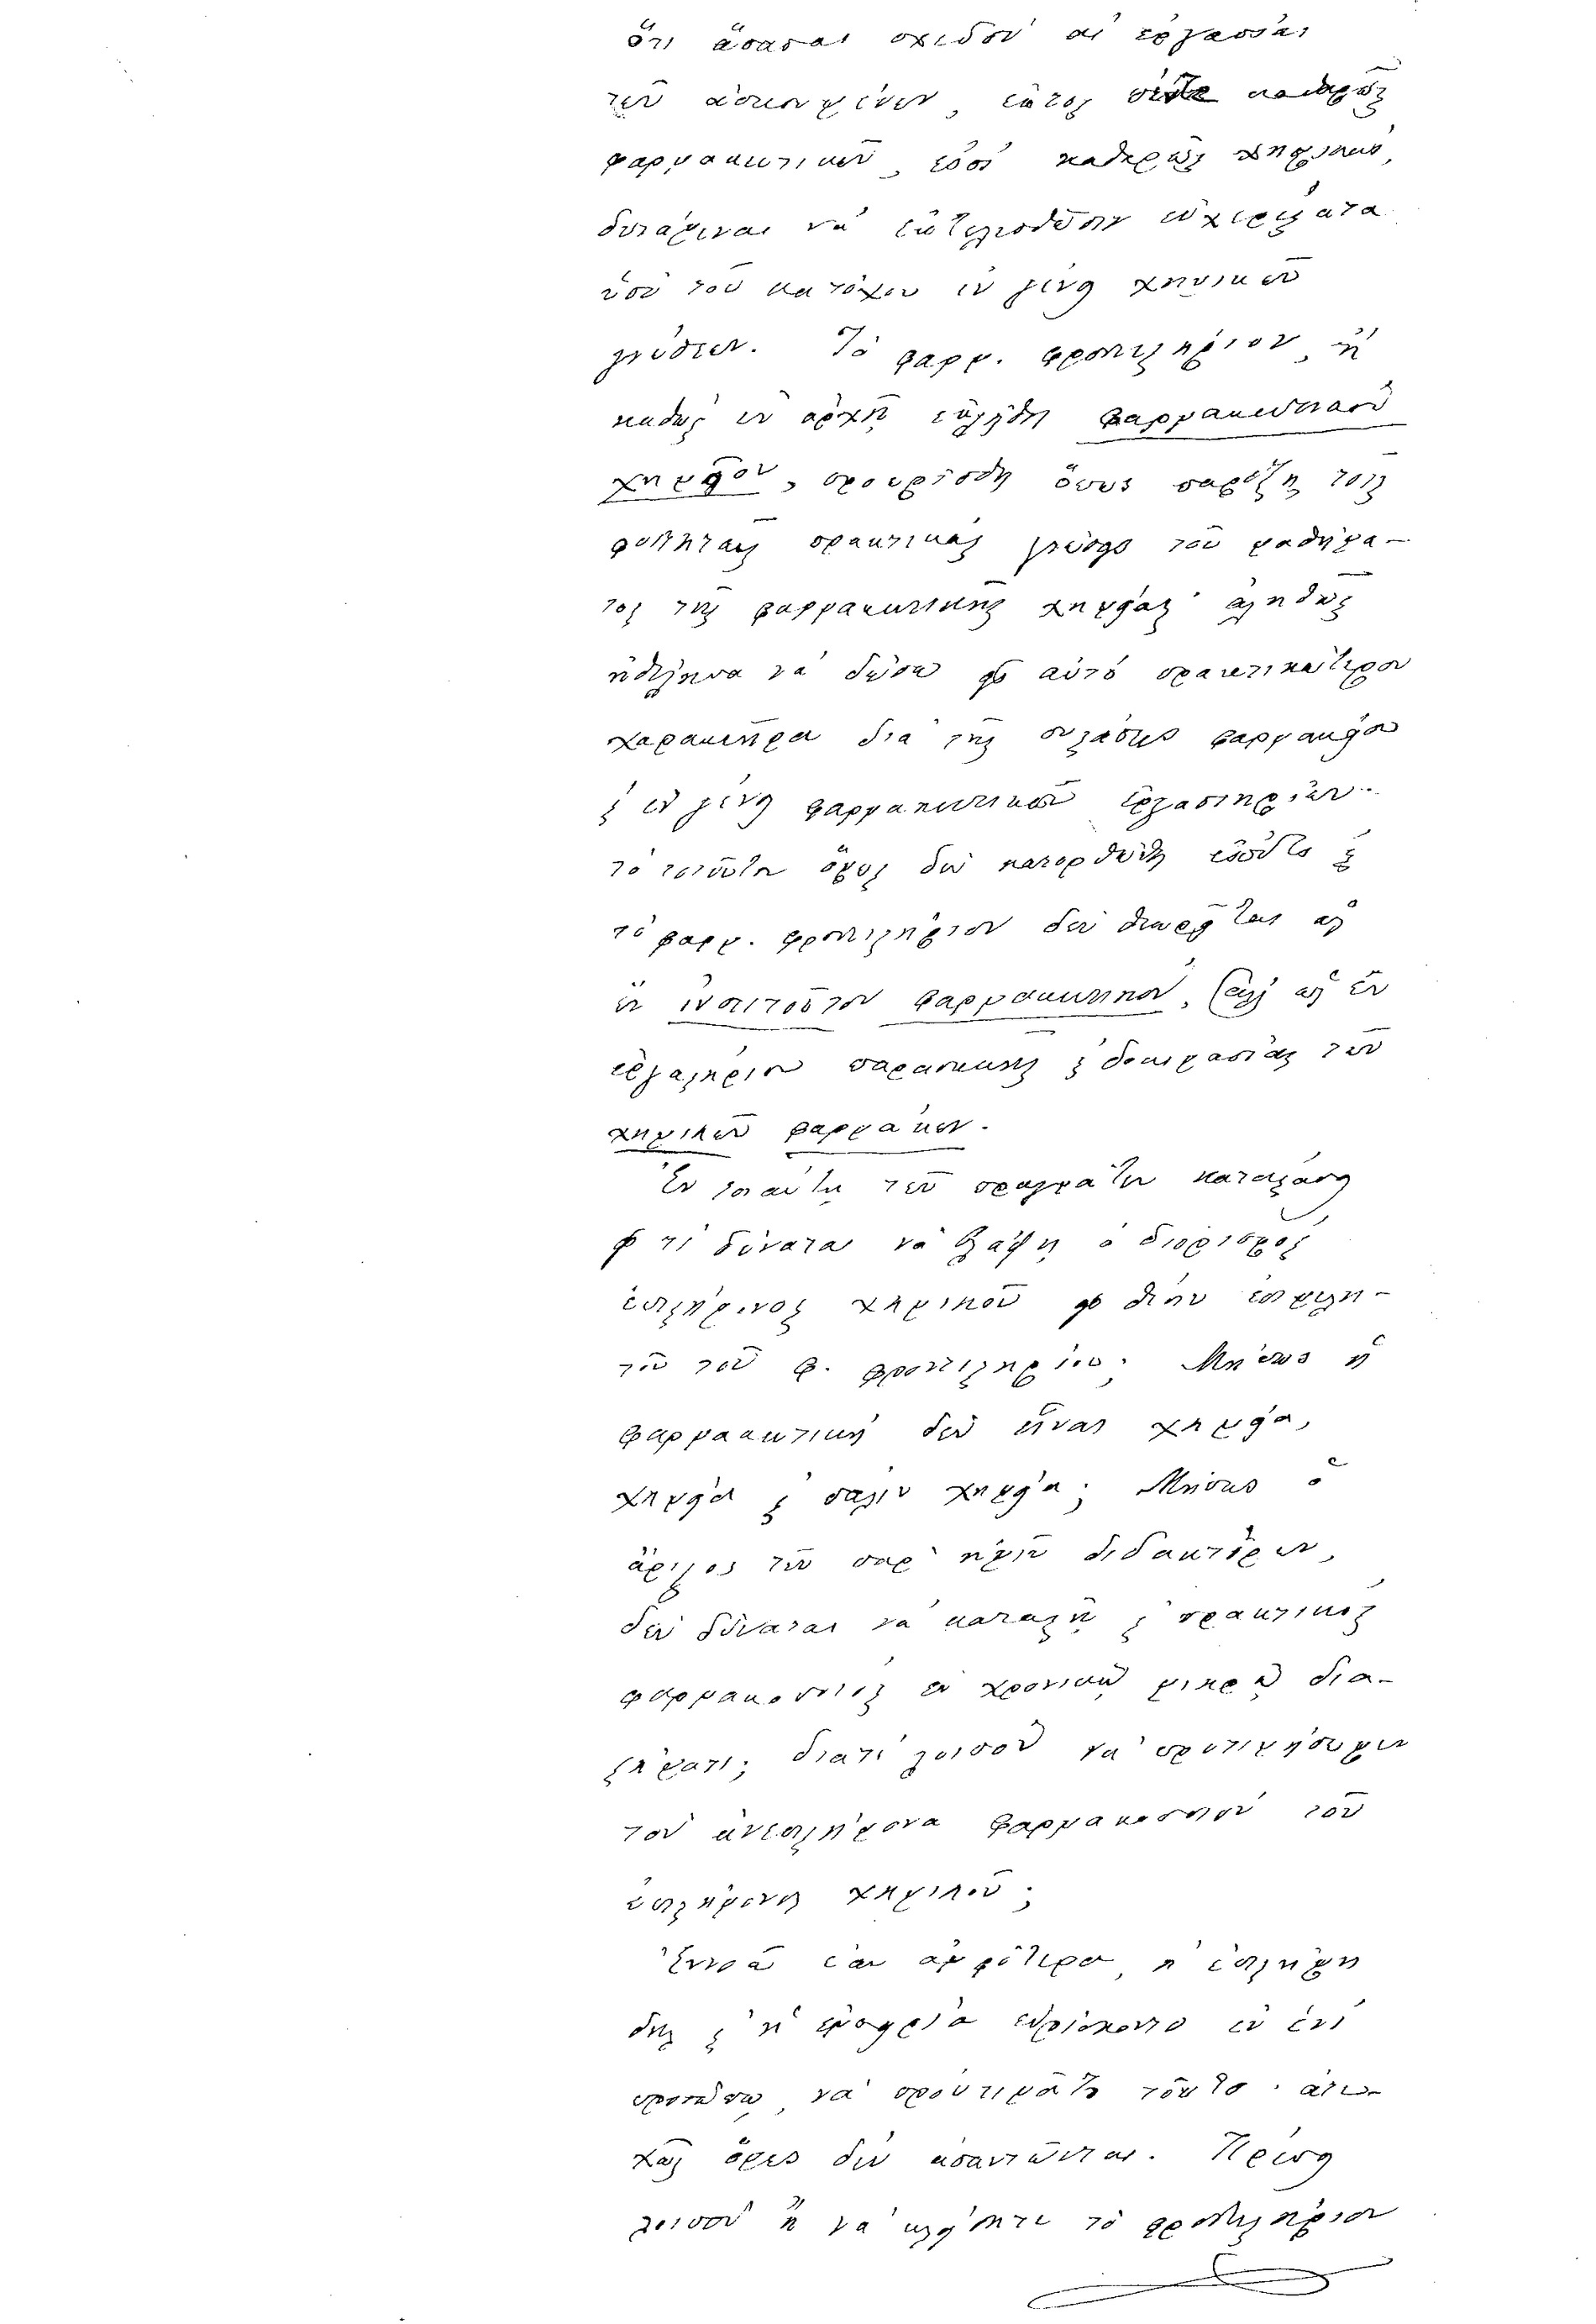 ὅτι ἅπασαι σχεδὸν αἱ ἐργασίαι
τῶν ἀσκουμένων, ἐκτὸς καθαρῶς
φαρμακευτικῶν, εἰσὶ καθαρῶς χημικαὶ,
δυνάμεναι νὰ ἐκτελεσθῶσιν εὐχερέστατα
ὑπὸ τοῦ κατόχου ἐν γένει χημικῶν
γνώσεων. Τὸ φαρμ. φροντιστήριον, ἢ
καθὼς ἐν ἀρχῇ ἐκλήθη φαρμακευτικὸν
χημεῖον, προωρίσθη ὅπως παρέχῃ τοῖς
φοιτηταῖς πρακτικὰς γνώσεις τοῦ μαθήμα-
τος τῆς φαρμακευτικῆς χημείας· ἀληθῶς
ἠθέλησα νὰ δώσω εἰς αὐτὸ πρακτικώτερον
χαρακτῆρα διὰ τῆς συστάσεως φαρμακείου
καὶ ἐν γένει φαρμακευτικῶν ἐργαστηρίων·
τὸ τοιοῦτον ὅμως δὲν κατορθώθη εἰσέτι καὶ
τὸ φαρμ. φροντιστήριον δὲν θεωρεῖται ὡς
ἓν ἰνστιτοῦτον φαρμακευτικὸν, ἀλλ' ὡς ἓν
ἐργαστήριον παρασκευῆς καὶ δοκιμασίας τῶν
χημικῶν φαρμάκων.
Ἐν τοιαύτῃ τῶν πραγμάτων καταστάσει
εἰς τί δύναται νὰ βλάψῃ ὁ διορισμὸς
ἐπιστήμονος χημικοῦ εἰς θέσιν ἐπιμελη-
τοῦ τοῦ φ. φροντιστηρίου; Μήπως ἡ
φαρμακευτικὴ δὲν εἶναι χημεία,
χημεία καὶ πάλιν χημεία; Μήπως ὁ
ἄριστος τῶν παρ' ἡμῖν διδακτόρων,
δὲν δύναται νὰ καταστῇ καὶ πρακτικὸς
φαρμακοποιὸς ἐν χρονικῷ μικρῷ δια-
στήματι; διατί λοιπὸν νὰ προτιμήσωμεν
τὸν ἀνεπιστήμονα φαρμακοποιὸν τοῦ
ἐπιστήμονος χημικοῦ;
Ἐννοῶ ἐὰν ἀμφότερα, ἡ ἐπιστήμη
δηλ. καὶ ἡ ἐμπειρία εὑρίσκοντο ἐν ἑνὶ
προσώπῳ, νὰ προὐτιμᾶτο τοῦτο· ἀτυ-
χῶς ὅμως δὲν ἀπαντῶνται. Πρέπει
λοιπὸν ἢ νὰ κλείσητε τὸ φροντιστήριον